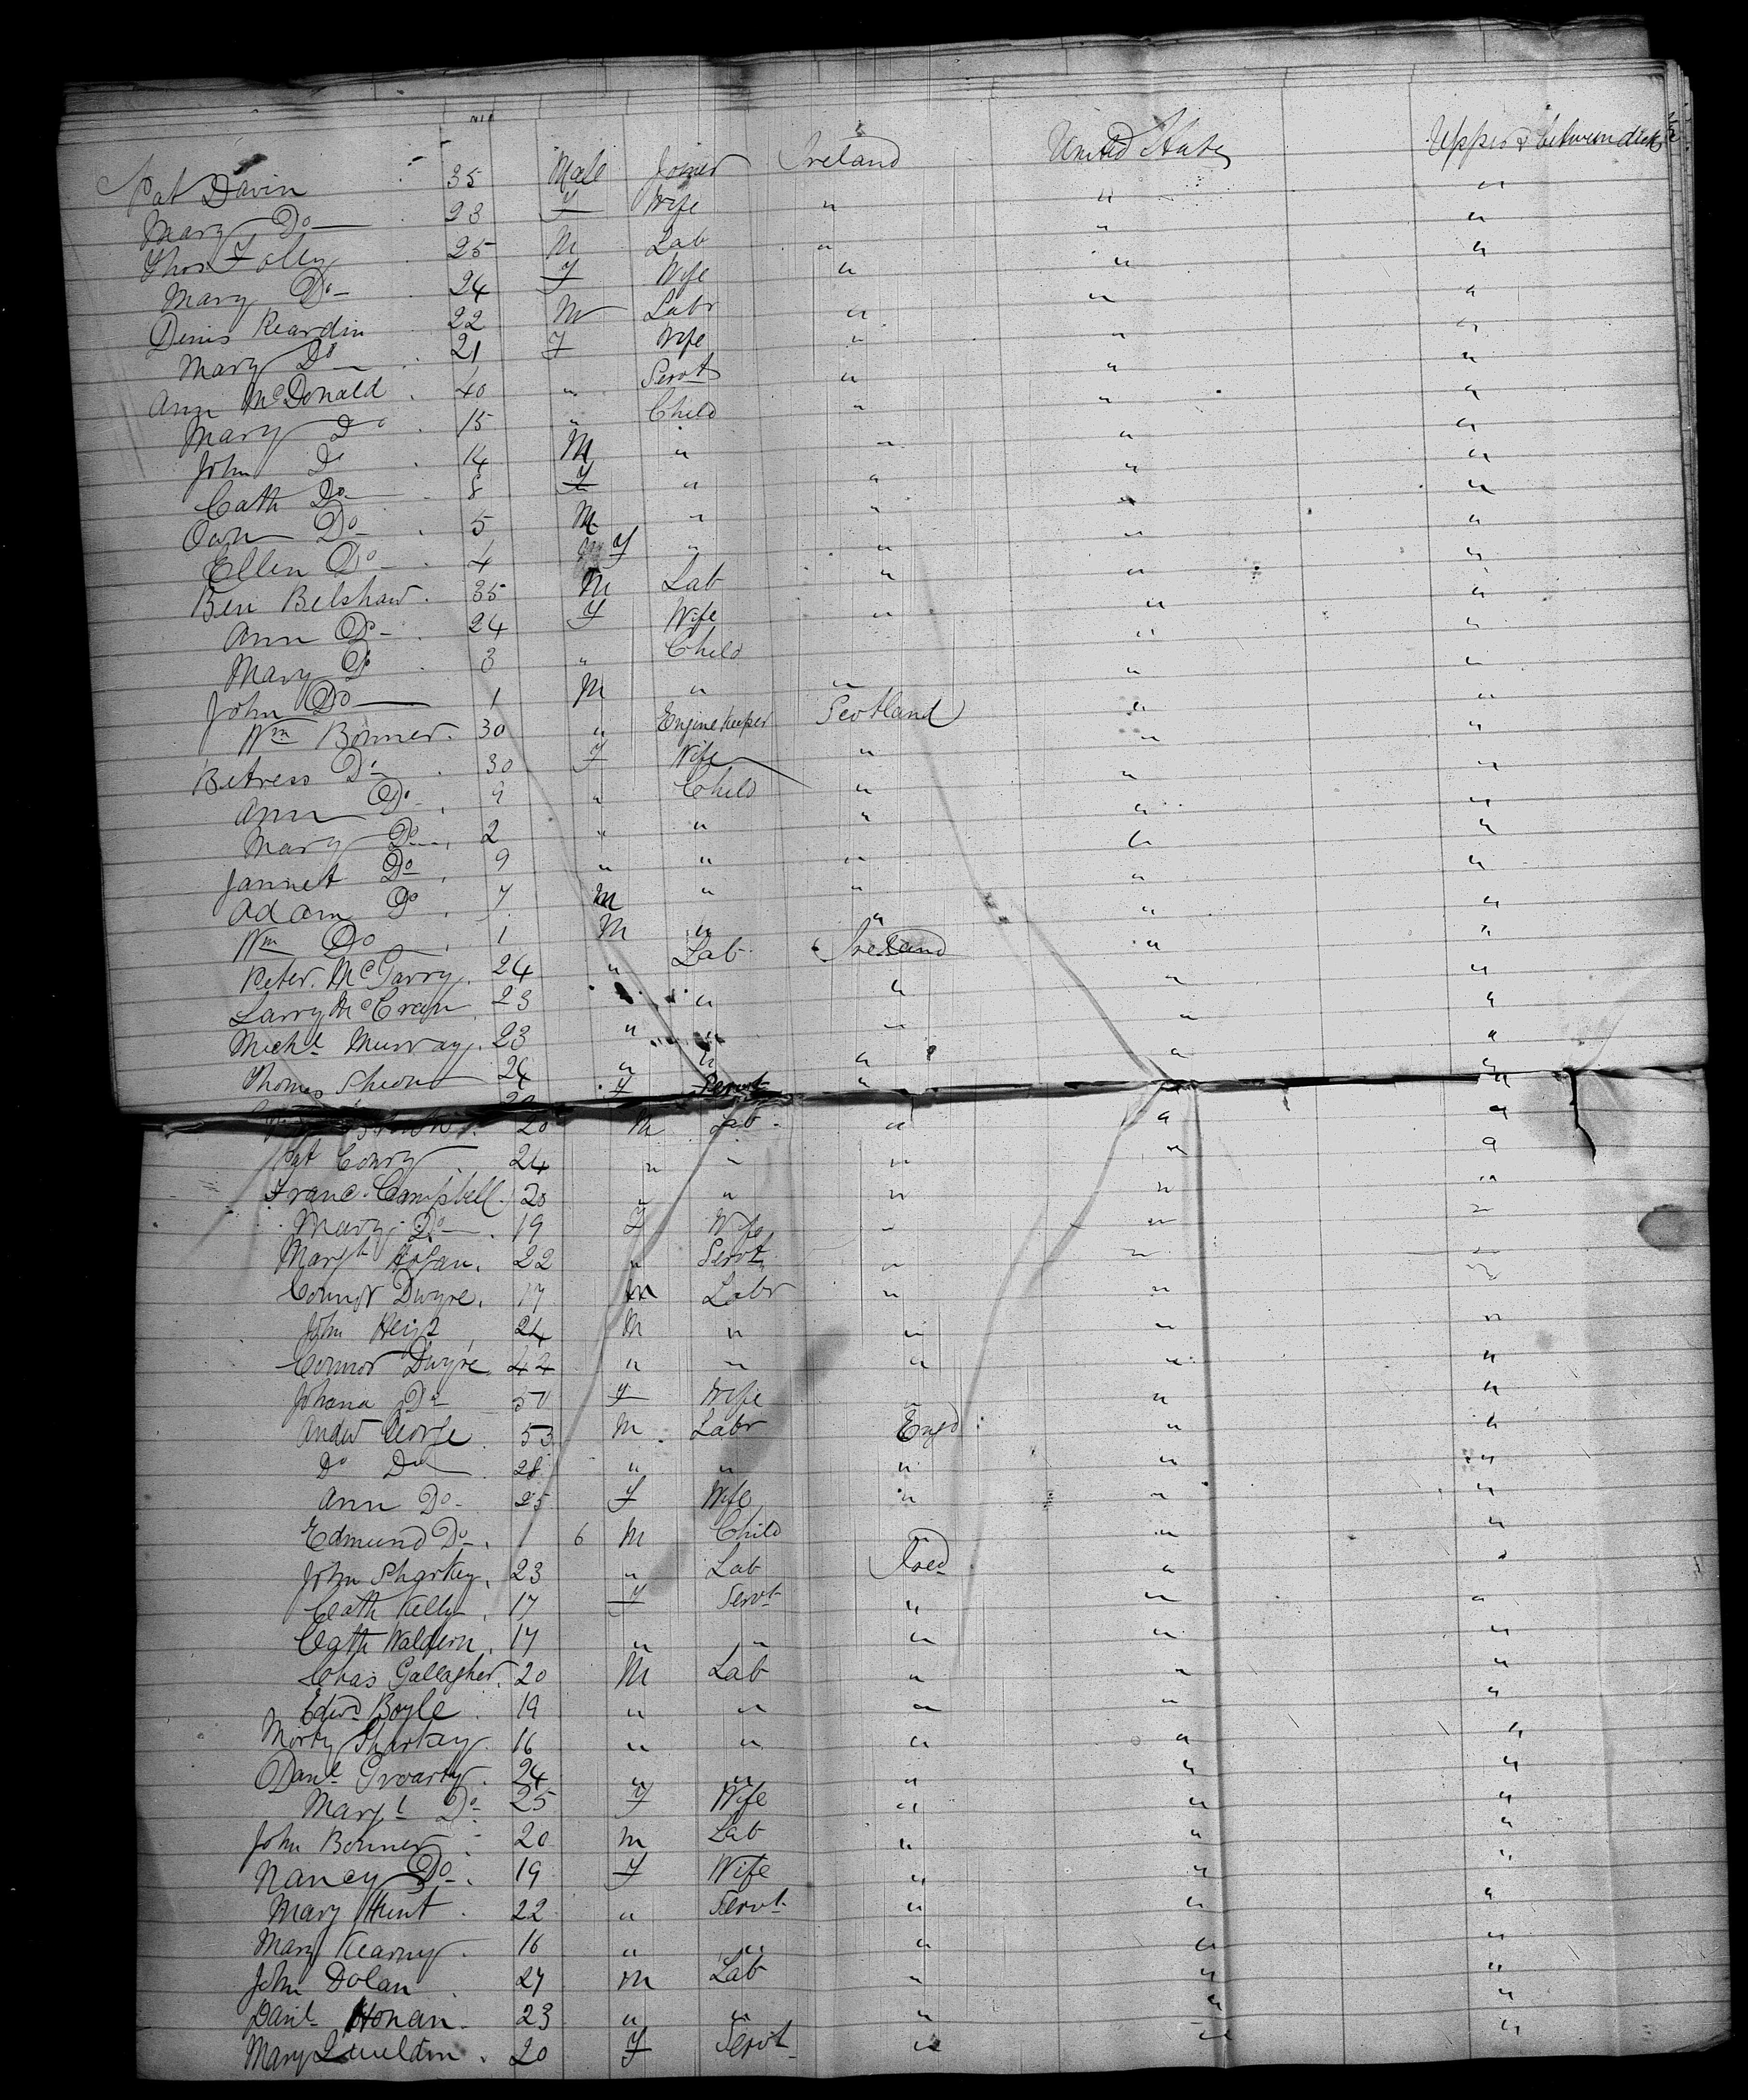 Pat Davin 35 Male Joiner Ireland United States Upper & between decks
Mary Do 23 F Wife " " "
Thos Foley 25 M Lab " " "
Mary Do 24 F Wife " " "
Denis Reardin 22 M Labr " " "
Mary Do 21 F Wife " " "
Ann McDonald 40 " Servt " " "
Mary Do 15 " Child " " "
John Do 14 M " " " "
Cath Do 8 F " " " "
Own Do 5 M " " " "
Ellen Do 4 F " " " "
Ben Belshaw 35 M Lab " " "
Ann Do 24 F Wife " " "
Mary Do 3 " Child " "
John Do 1 M " " " "
Wm Bonner 30 " Engine Keeper Scotland " "
Betress Do 30 F Wife " " "
Ann Do 9 " Child " " "
Mary Do 2 " " " " "
Jannet Do 9 " " " " "
Adam Do 7 M " " " "
Wm Do 1 M " " " "
Peter McGarry 24 " Lab Ireland " "
Larry McCran 23 " " " "
Michl Murray 23 " " " " "
Thomas Sheon 24 " " " " "
F Servt "
20 M Lab " " "
Pat Conry 24 " " " " "
Franc Campbell 20 " " " " "
Mary Do 19 F Wife " " "
Margt Hogan 22 " Servt " " "
Connor Dwyre 17 M Labr " " "
John 24 M " " " "
Connor Dwyre 44 " " " " "
Johana Do 50 F Wife " " "
Andw George 53 M Labr Engd " "
Do Do 28 " " " " "
Ann Do 25 F Wife " " "
Edmund Do 1 6 M Child " " "
John Sharkey 23 " Lab Ireld " "
Cath Kelly 17 F Servt " " "
Cath Waldern 17 " " " " "
Chas Gallagher 20 M Lab " " "
Edwd Boyle 19 " " " " "
Morty Sharkey 16 " " " " "
Danl Groarty 24 " " " " "
Margt Do 25 F Wife " " "
John Bonner 20 M Lab " " "
Nancy Do 19 F Wife " " "
Mary Hunt 22 " Servt " " "
Mary Kearny 16 " " " " "
John Dolan 27 M Lab " " "
Danl Honan 23 " " " " "
Mary 20 F Servt " " "